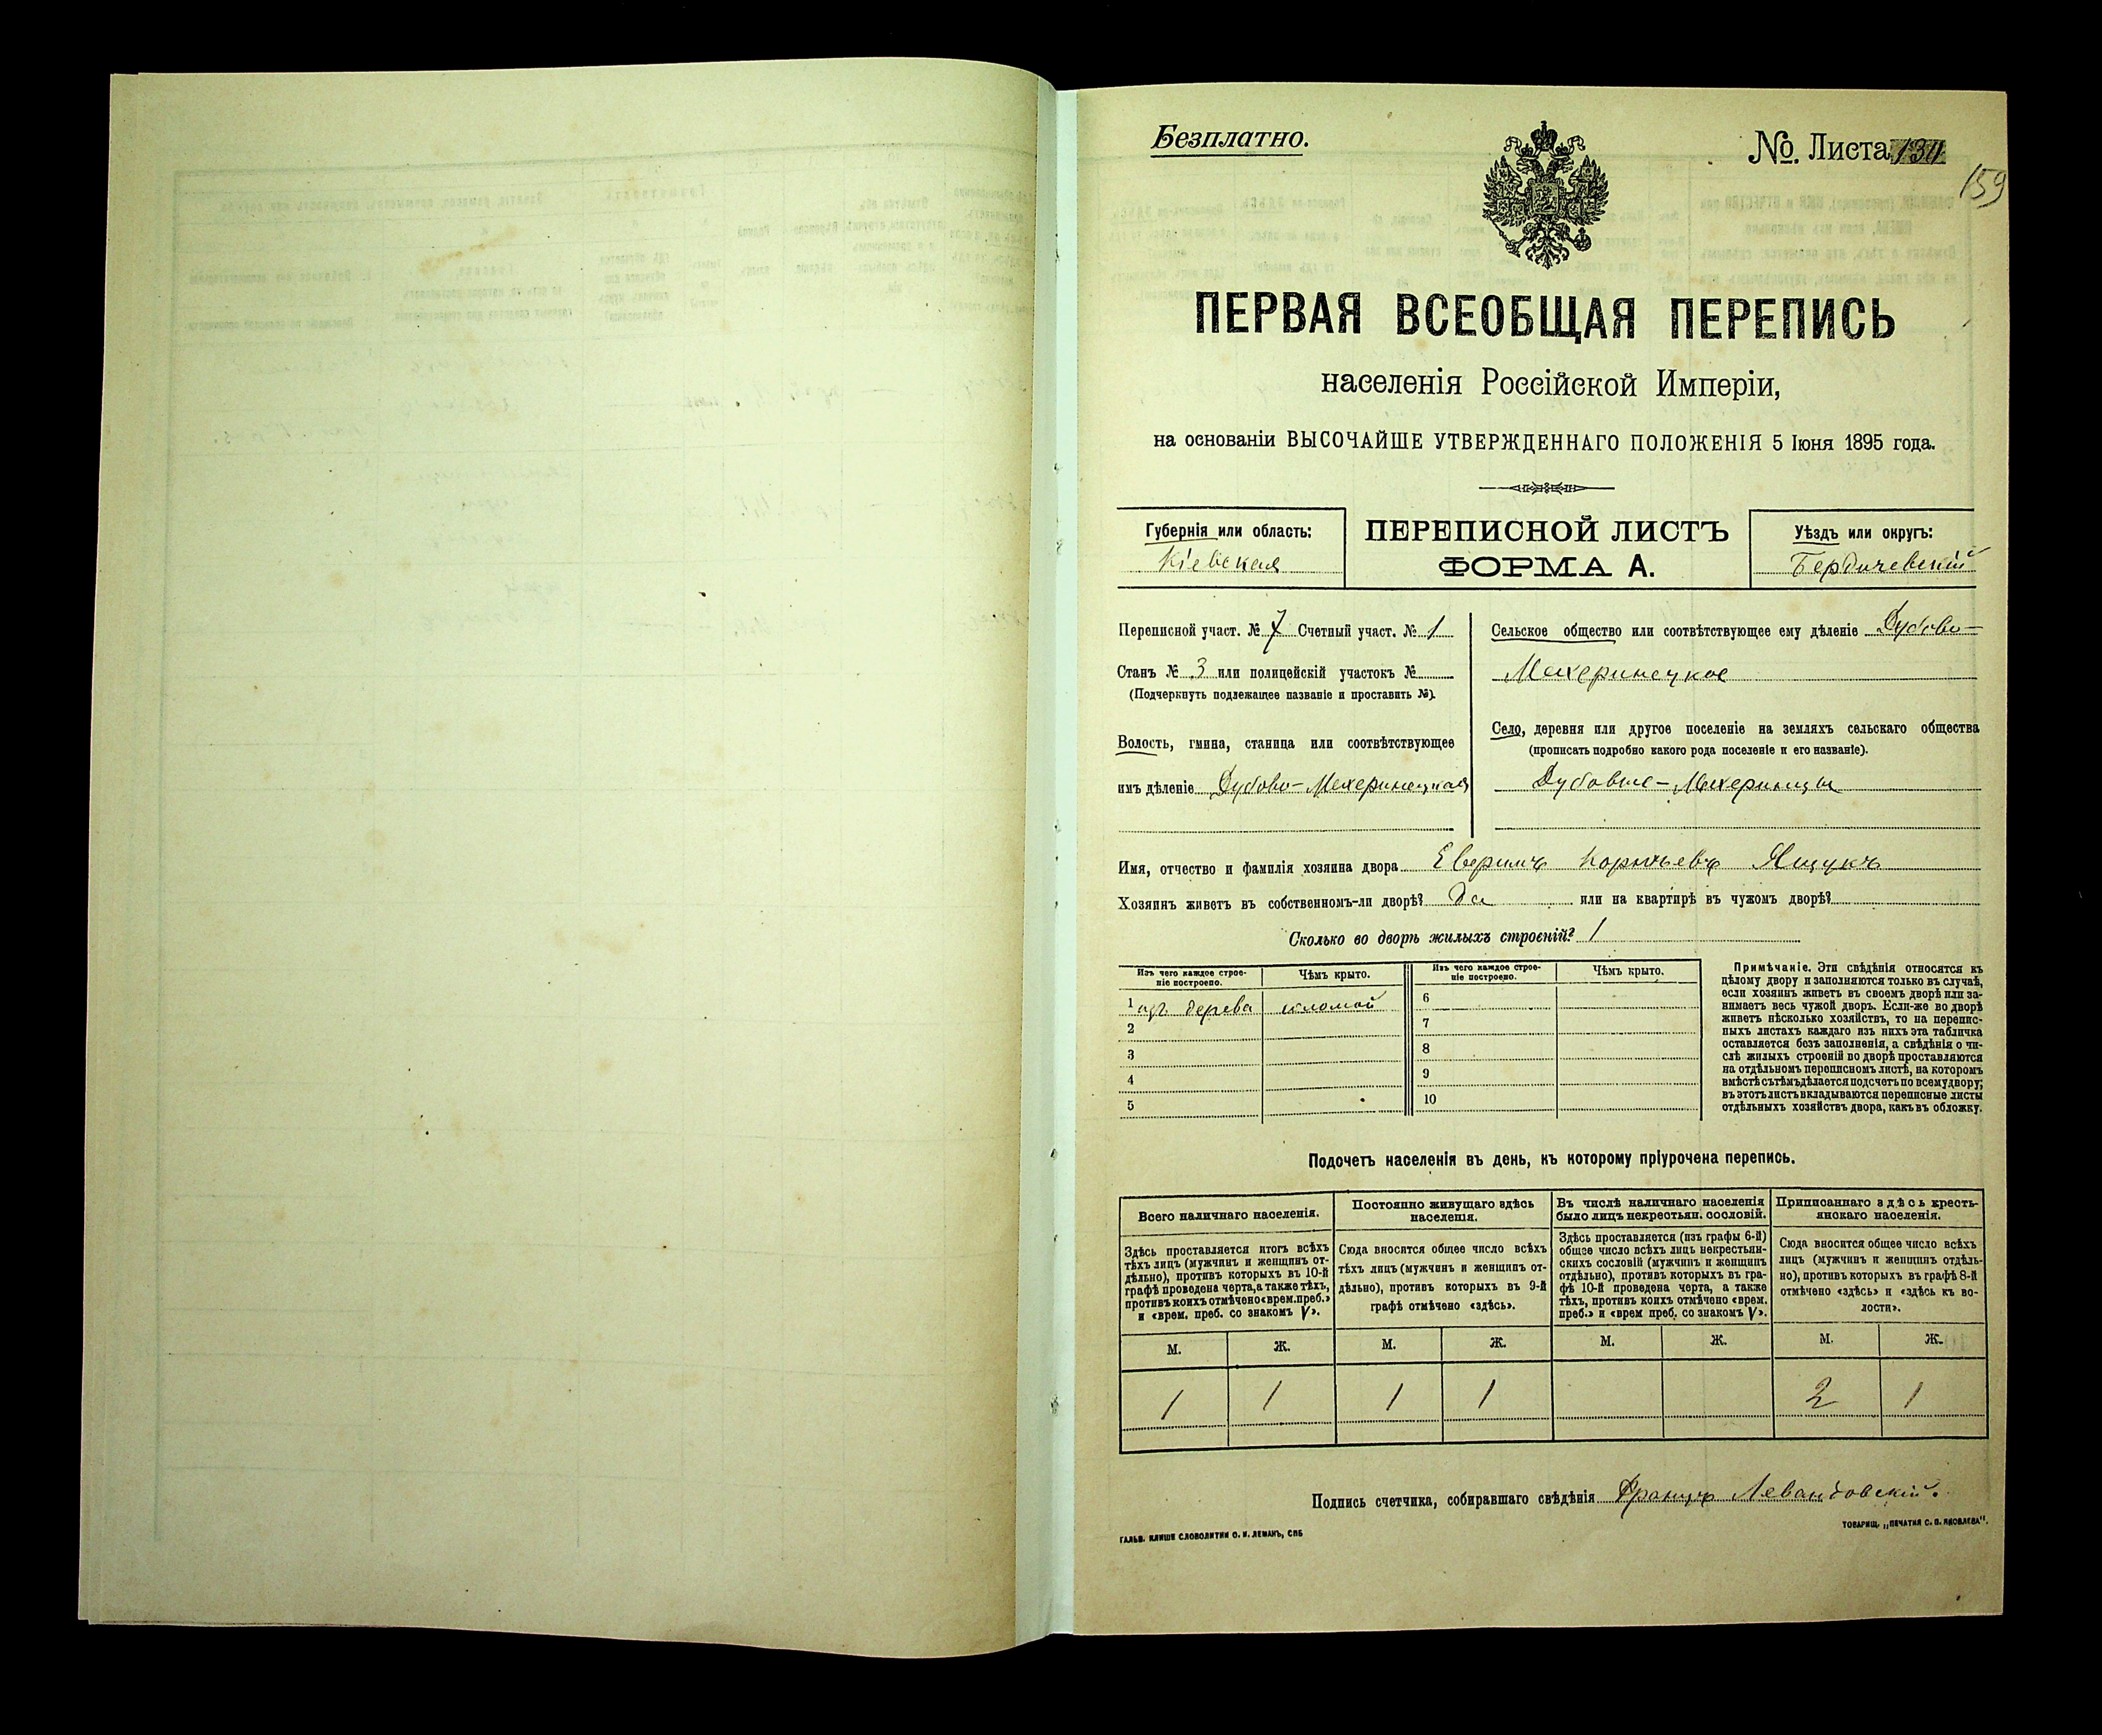 Безплатно.
№ Листа 134
159
ПЕРВАЯ ВСЕОБЩАЯ ПЕРЕПИСЬ
населенія Россійской Имперіи,
на основаніи ВЫСОЧАЙШЕ УТВЕРЖДЕННАГО ПОЛОЖЕНІЯ 5 Іюня 1895 года.
Губернія или область:
Кіевская
ПЕРЕПИСНОЙ ЛИСТЪ
ФОРМА А.
Уѣздъ или округъ:
Бердичевскій
Переписной участ. № 7 Счетный участ. № 1
Станъ № 3 или полицейскій участокъ №
(Подчеркнуть подлежащее названіе и проставить №).
Волость, гмина, станица или соотвѣтствующее
имъ дѣленіе Дубово-Махеринецкая
Сельское общество или соотвѣтствующее ему дѣленіе Дубово-
Махеринецкое
Село, деревня или другое поселеніе на земляхъ сельскаго общества
(прописать подробно какого рода поселеніе и его названіе).
Дубовые-Махеринцы
Имя, отчество и фамилія хозяина двора Ящукъ
Хозяинъ живетъ въ собственномъ-ли дворѣ? Да или на квартирѣ въ чужомъ дворѣ?
Сколько во дворѣ жилыхъ строеній? 1
Изъ чего каждое строе-
ніе построено.
Чѣмъ крыто.
1 изъ дерева соломой
2
3
4
5
Изъ чего каждое строе-
ніе построено.
Чѣмъ крыто.
6
7
8
9
10
Примѣчаніе. Эти свѣдѣнія относятся къ
цѣлому двору и заполняются только въ случаѣ,
если хозяинъ живетъ въ своемъ дворѣ или за-
нимаетъ весь чужой дворъ. Если-же во дворѣ
живетъ нѣсколько хозяйствъ, то на перепис-
ныхъ листахъ каждаго изъ нихъ эта табличка
оставляется безъ заполненія, а свѣдѣнія о чи-
слѣ жилыхъ строеній во дворѣ проставляются
на отдѣльномъ переписномъ листѣ, на которомъ
вмѣстѣ съ тѣмъ дѣлается подсчетъ по всему двору;
въ этотъ листъ вкладываются переписные листы
отдѣльныхъ хозяйствъ двора, какъ въ обложку.
Подочетъ населенія въ день, къ которому пріурочена перепись.
Всего наличнаго населенія.
Здѣсь проставляется итогъ всѣхъ
тѣхъ лицъ (мужчинъ и женщинъ от-
дѣльно), противъ которыхъ въ 10-й
графѣ проведена черта, а также тѣхъ,
противъ коихъ отмѣчено «врем. преб.»
и «врем. преб. со знакомъ V».
М. Ж.
1 1
Постоянно живущаго здѣсь
населенія.
Сюда вносится общее число всѣхъ
тѣхъ лицъ (мужчинъ и женщинъ от-
дѣльно), противъ которыхъ въ 9-й
графѣ отмѣчено «здѣсь».
М. Ж.
1 1
Въ числѣ наличнаго населенія
было лицъ некрестьян. сословій.
Здѣсь проставляется (изъ графы 6-й)
общее число всѣхъ лицъ некрестьян-
скихъ сословій (мужчинъ и женщинъ
отдѣльно), противъ которыхъ въ гра-
фѣ 10-й проведена черта, а также
тѣхъ, противъ коихъ отмѣчено «врем.
преб.» и «врем преб. со знакомъ V».
М. Ж.
Приписаннаго здѣсь кресть-
янскаго населенія.
Сюда вносится общее число всѣхъ
лицъ (мужчинъ и женщинъ отдѣль-
но), противъ которыхъ въ графѣ 8-й
отмѣчено «здѣсь» и «здѣсь къ во-
лости».
М. Ж.
2 1
Подпись счетчика, собиравшаго свѣдѣнія Францъ Левандовскій.
ГАЛЬВ. КЛИШЕ СЛОВОЛИТНИ О. И. ЛЕМАНЪ, СПБ
ТОВАРИЩ. „ПЕЧАТНЯ С. П. ЯКОВЛЕВА".